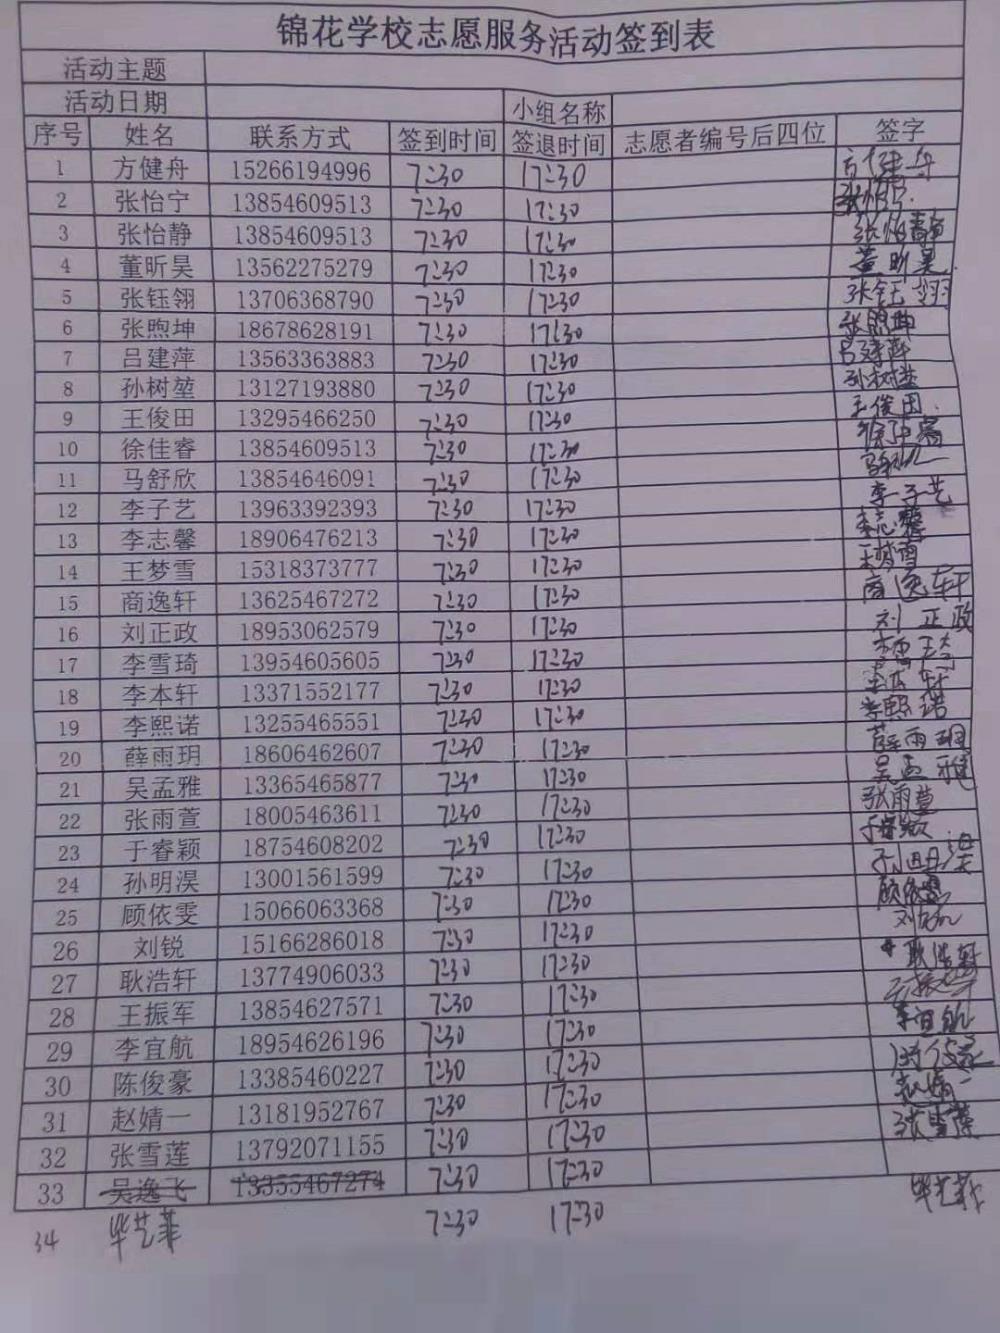 锦花学校志愿服务活动签到表
活动主题
活动日期 小组名称
序号 姓名 联系方式 签到时间 签退时间 志愿者编号后四位 签字
1 方健舟 15266194996 7:30 17:30 方健舟
2 张怡宁 13854609513 7:30 17:30 张怡宁
3 张怡静 13854609513 7:30 17:30 张怡静
4 董昕昊 13562275279 7:30 17:30 董昕昊
5 张钰翎 13706368790 7:30 17:30 张钰翎
6 张煦坤 18678628191 7:30 17:30 张煦坤
7 吕建萍 13563363883 7:30 17:30 吕建萍
8 孙树堃 13127193880 7:30 17:30 孙树堃
9 王俊田 13295466250 7:30 17:30 王俊田
10 徐佳睿 13854609513 7:30 17:30 徐佳睿
11 马舒欣 13854646091 7:30 17:30
12 李子艺 13963392393 7:30 17:30 李子艺
13 李志馨 18906476213 7:30 17:30 李志馨
14 王梦雪 15318373777 7:30 17:30 王梦雪
15 商逸轩 13625467272 7:30 17:30 商逸轩
16 刘正政 18953062579 7:30 17:30 刘正政
17 李雪琦 13954605605 7:30 17:30 李雪琦
18 李本轩 13371552177 7:30 17:30 李本轩
19 李熙诺 13255465551 7:30 17:30 李熙诺
20 薛雨玥 18606462607 7:30 17:30 薛雨玥
21 吴孟雅 13365465877 7:30 17:30 吴孟雅
22 张雨萱 18005463611 7:30 17:30 张雨萱
23 于睿颖 18754608202 7:30 17:30 于睿颖
24 孙明淏 13001561599 7:30 17:30 孙明淏
25 顾依雯 15066063368 7:30 17:30 顾依雯
26 刘锐 15166286018 7:30 17:30 刘锐
27 耿浩轩 13774906033 7:30 17:30 耿浩轩
28 王振军 13854627571 7:30 17:30 王振军
29 李宜航 18954626196 7:30 17:30 李宜航
30 陈俊豪 13385460227 7:30 17:30 陈俊豪
31 赵婧一 13181952767 7:30 17:30 赵婧一
32 张雪莲 13792071155 7:30 17:30 张雪莲
33 吴逸飞 13355467274 7:30 17:30
34 毕艺菲 7:30 17:30 毕艺菲